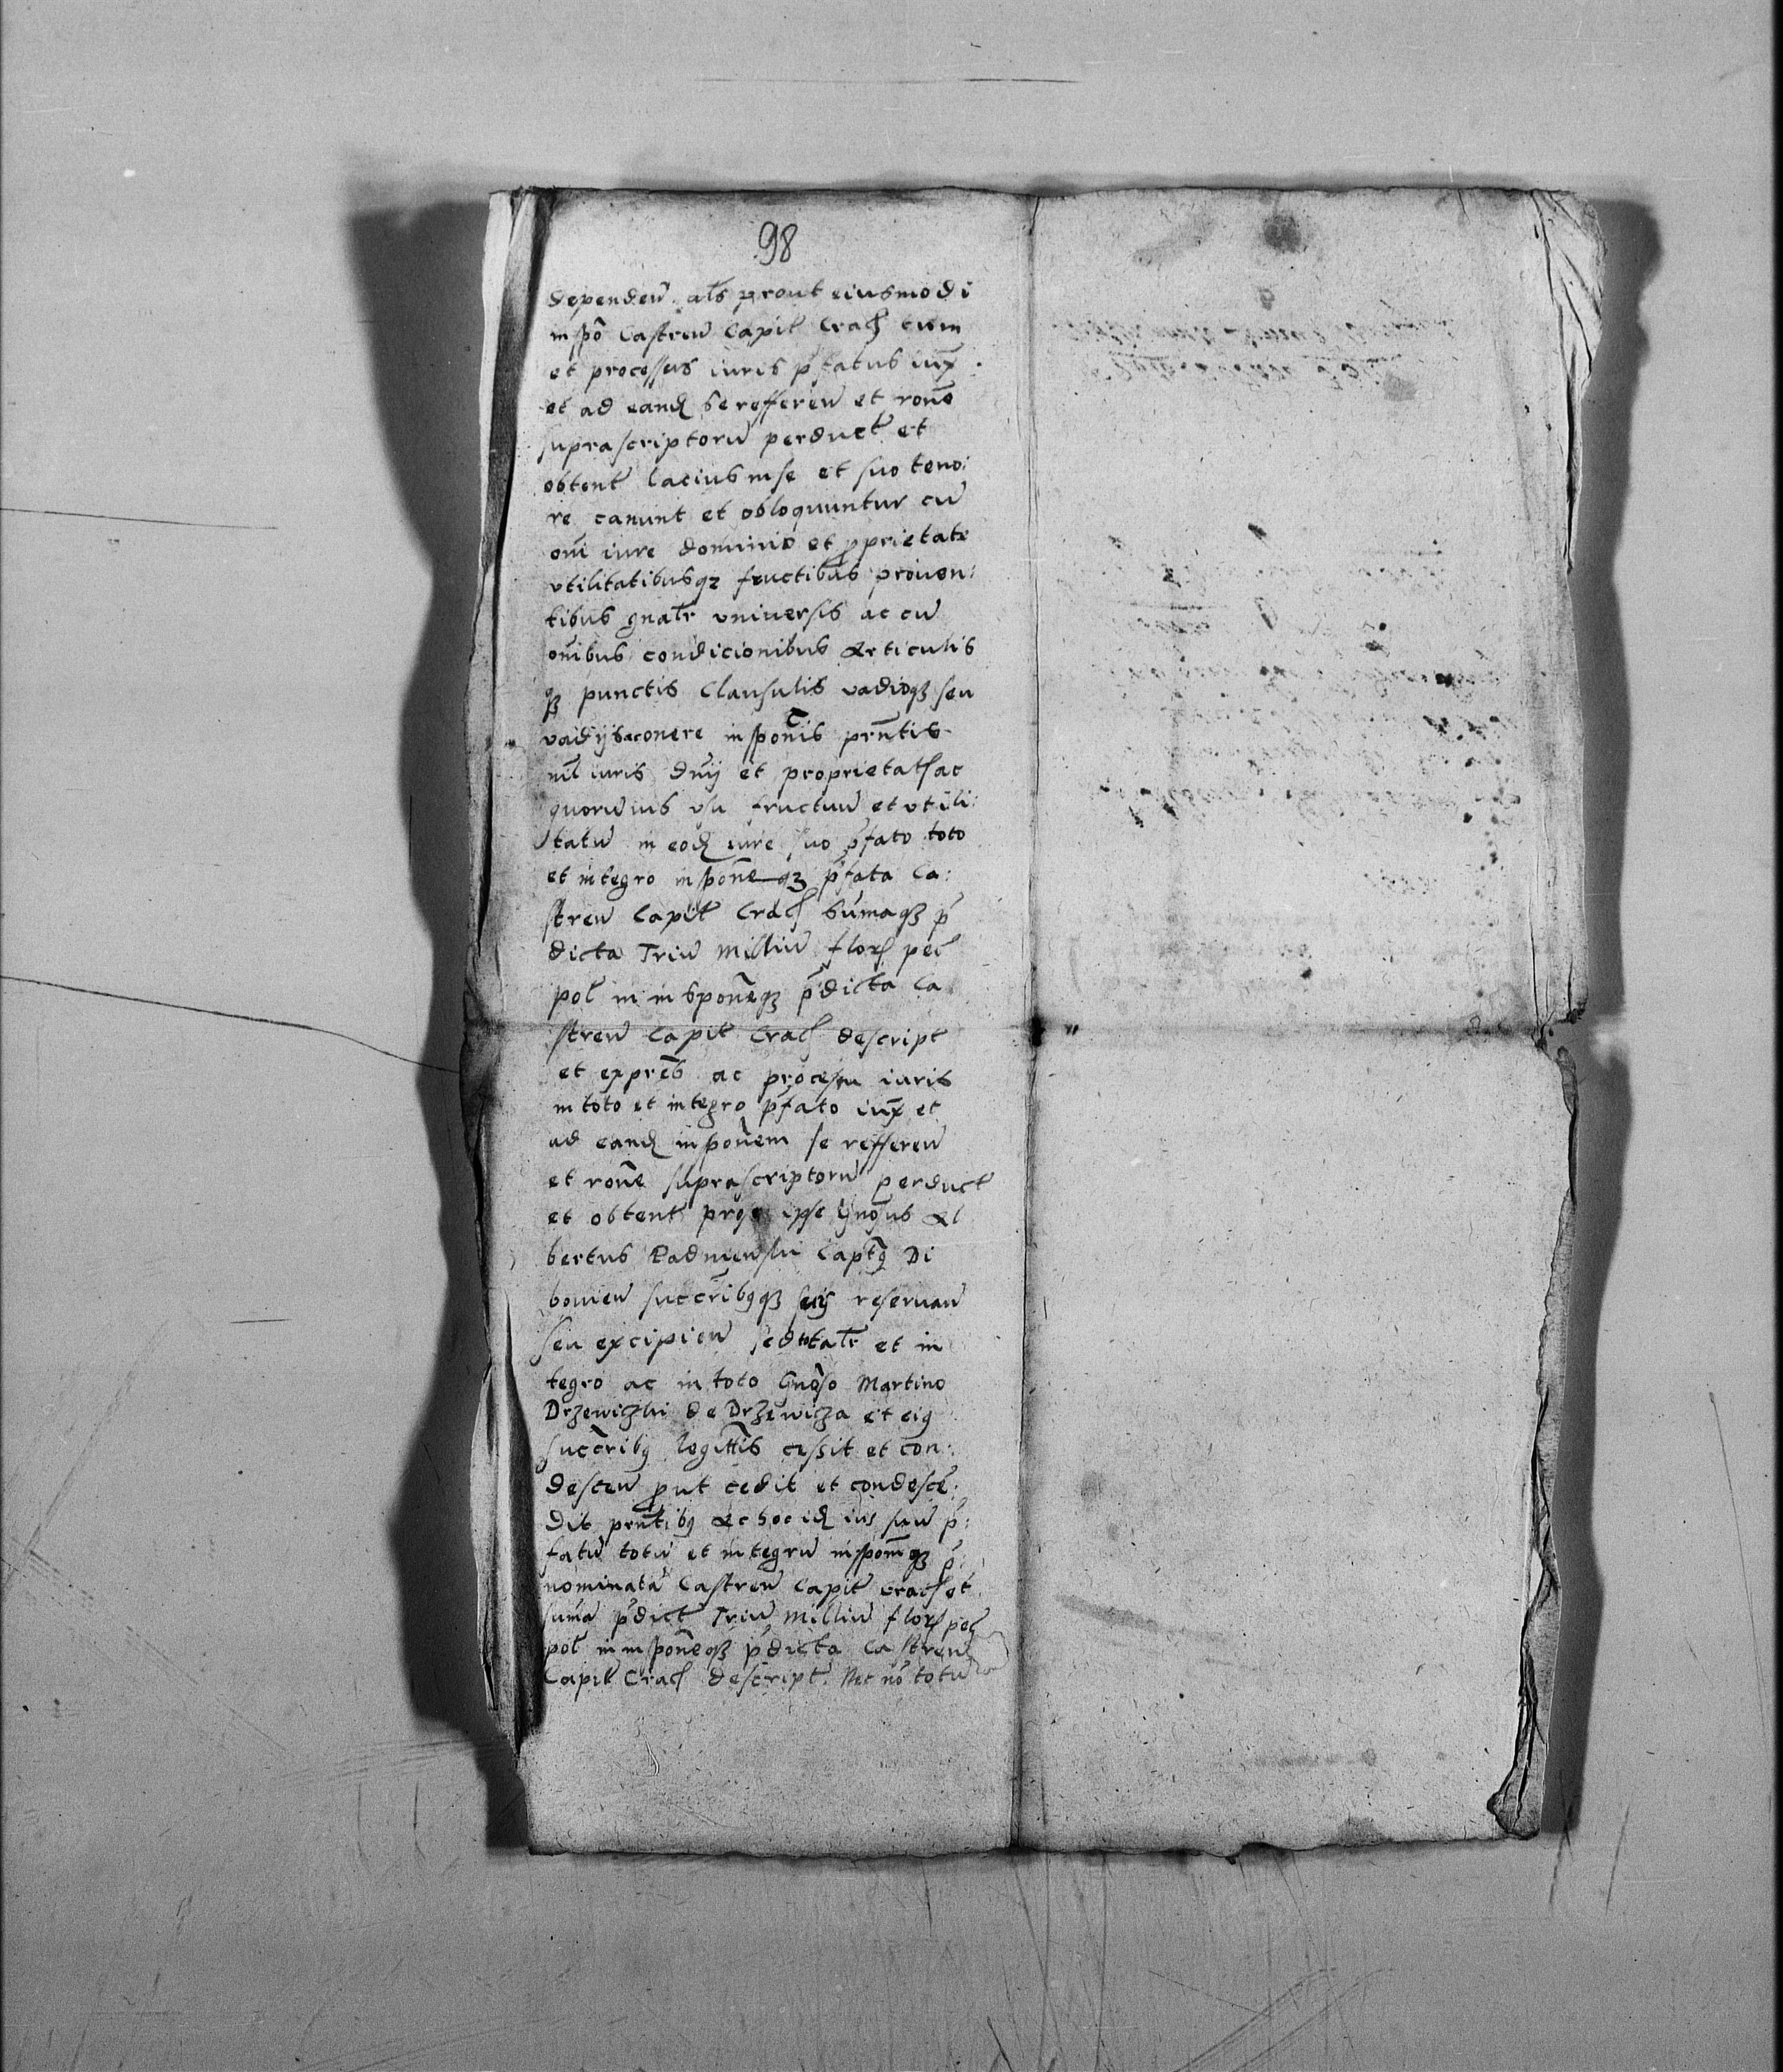 98
dependeñ als prout eiusmodi
inspō Castreñ Capit̃ Crac̃ cum
et processus iuris p̃fatus iux̃
et ad eand̃ se refferen̄ et ronē
suprascriptorū perduct̃ et
obtent̃ lacius in se et suo teno:
re canunt et obloquuntur cū
oñi iure dominio et pprietate
vtilitatibusqȝ fructibus prouen:
tibus gnalr̃ vniversis ac cū
oñibus condicionibus Articulis
qȝ punctis Clausulis vadioqȝ seu
vadijs ac onere insponīs prn̄tis
nil iuris dn̄ij et proprietat̃ ac
quorūuis vsu fructuū et vtili:
tatū in eod̃ iure suo p̃fato toto
et integro insponē qȝ p̃fata Ca:
streñ Capit̃ Crac̃ sum̄aqȝ p̃
dicta Triū Milliū flor̃ pec̃
pol̃ in insponēqȝ p̃dicta Ca
streñ Capit̃ Crac̃ descript
et exprēs ac processu iuris
in toto et integro p̃fato iux̃ et
ad eand̃ insponēm se refferen̄
et ronē suprascriptorū perduct̃
et obtent̃ ipse Gnōsus Al
bertus Padniewski Capt̃9 Di
bouieñ succrībȝqȝ suis reseruan̄
seu excipien̄ sed totalr̃ et in
tegro ac in toto Gnōso Martino
Drzewiczki de Drzewicza et ei9
succrīb9 legittīs cessit et con:
descen̄ put cedit et condescē:
dit prn̄tib9 Ac hoc id̃ ius suū p̃:
fatū totū et integrū insponēmqȝ p̃:
nominatā Castreñ Capit̃ Crac̃ et
sum̄ā p̃dict̃ Triū Milliū flor̃ pec̃
pol̃ in insponēqȝ p̃dicta Castreñ
Capit̃ Crac̃ descript̃. Nec nō totū